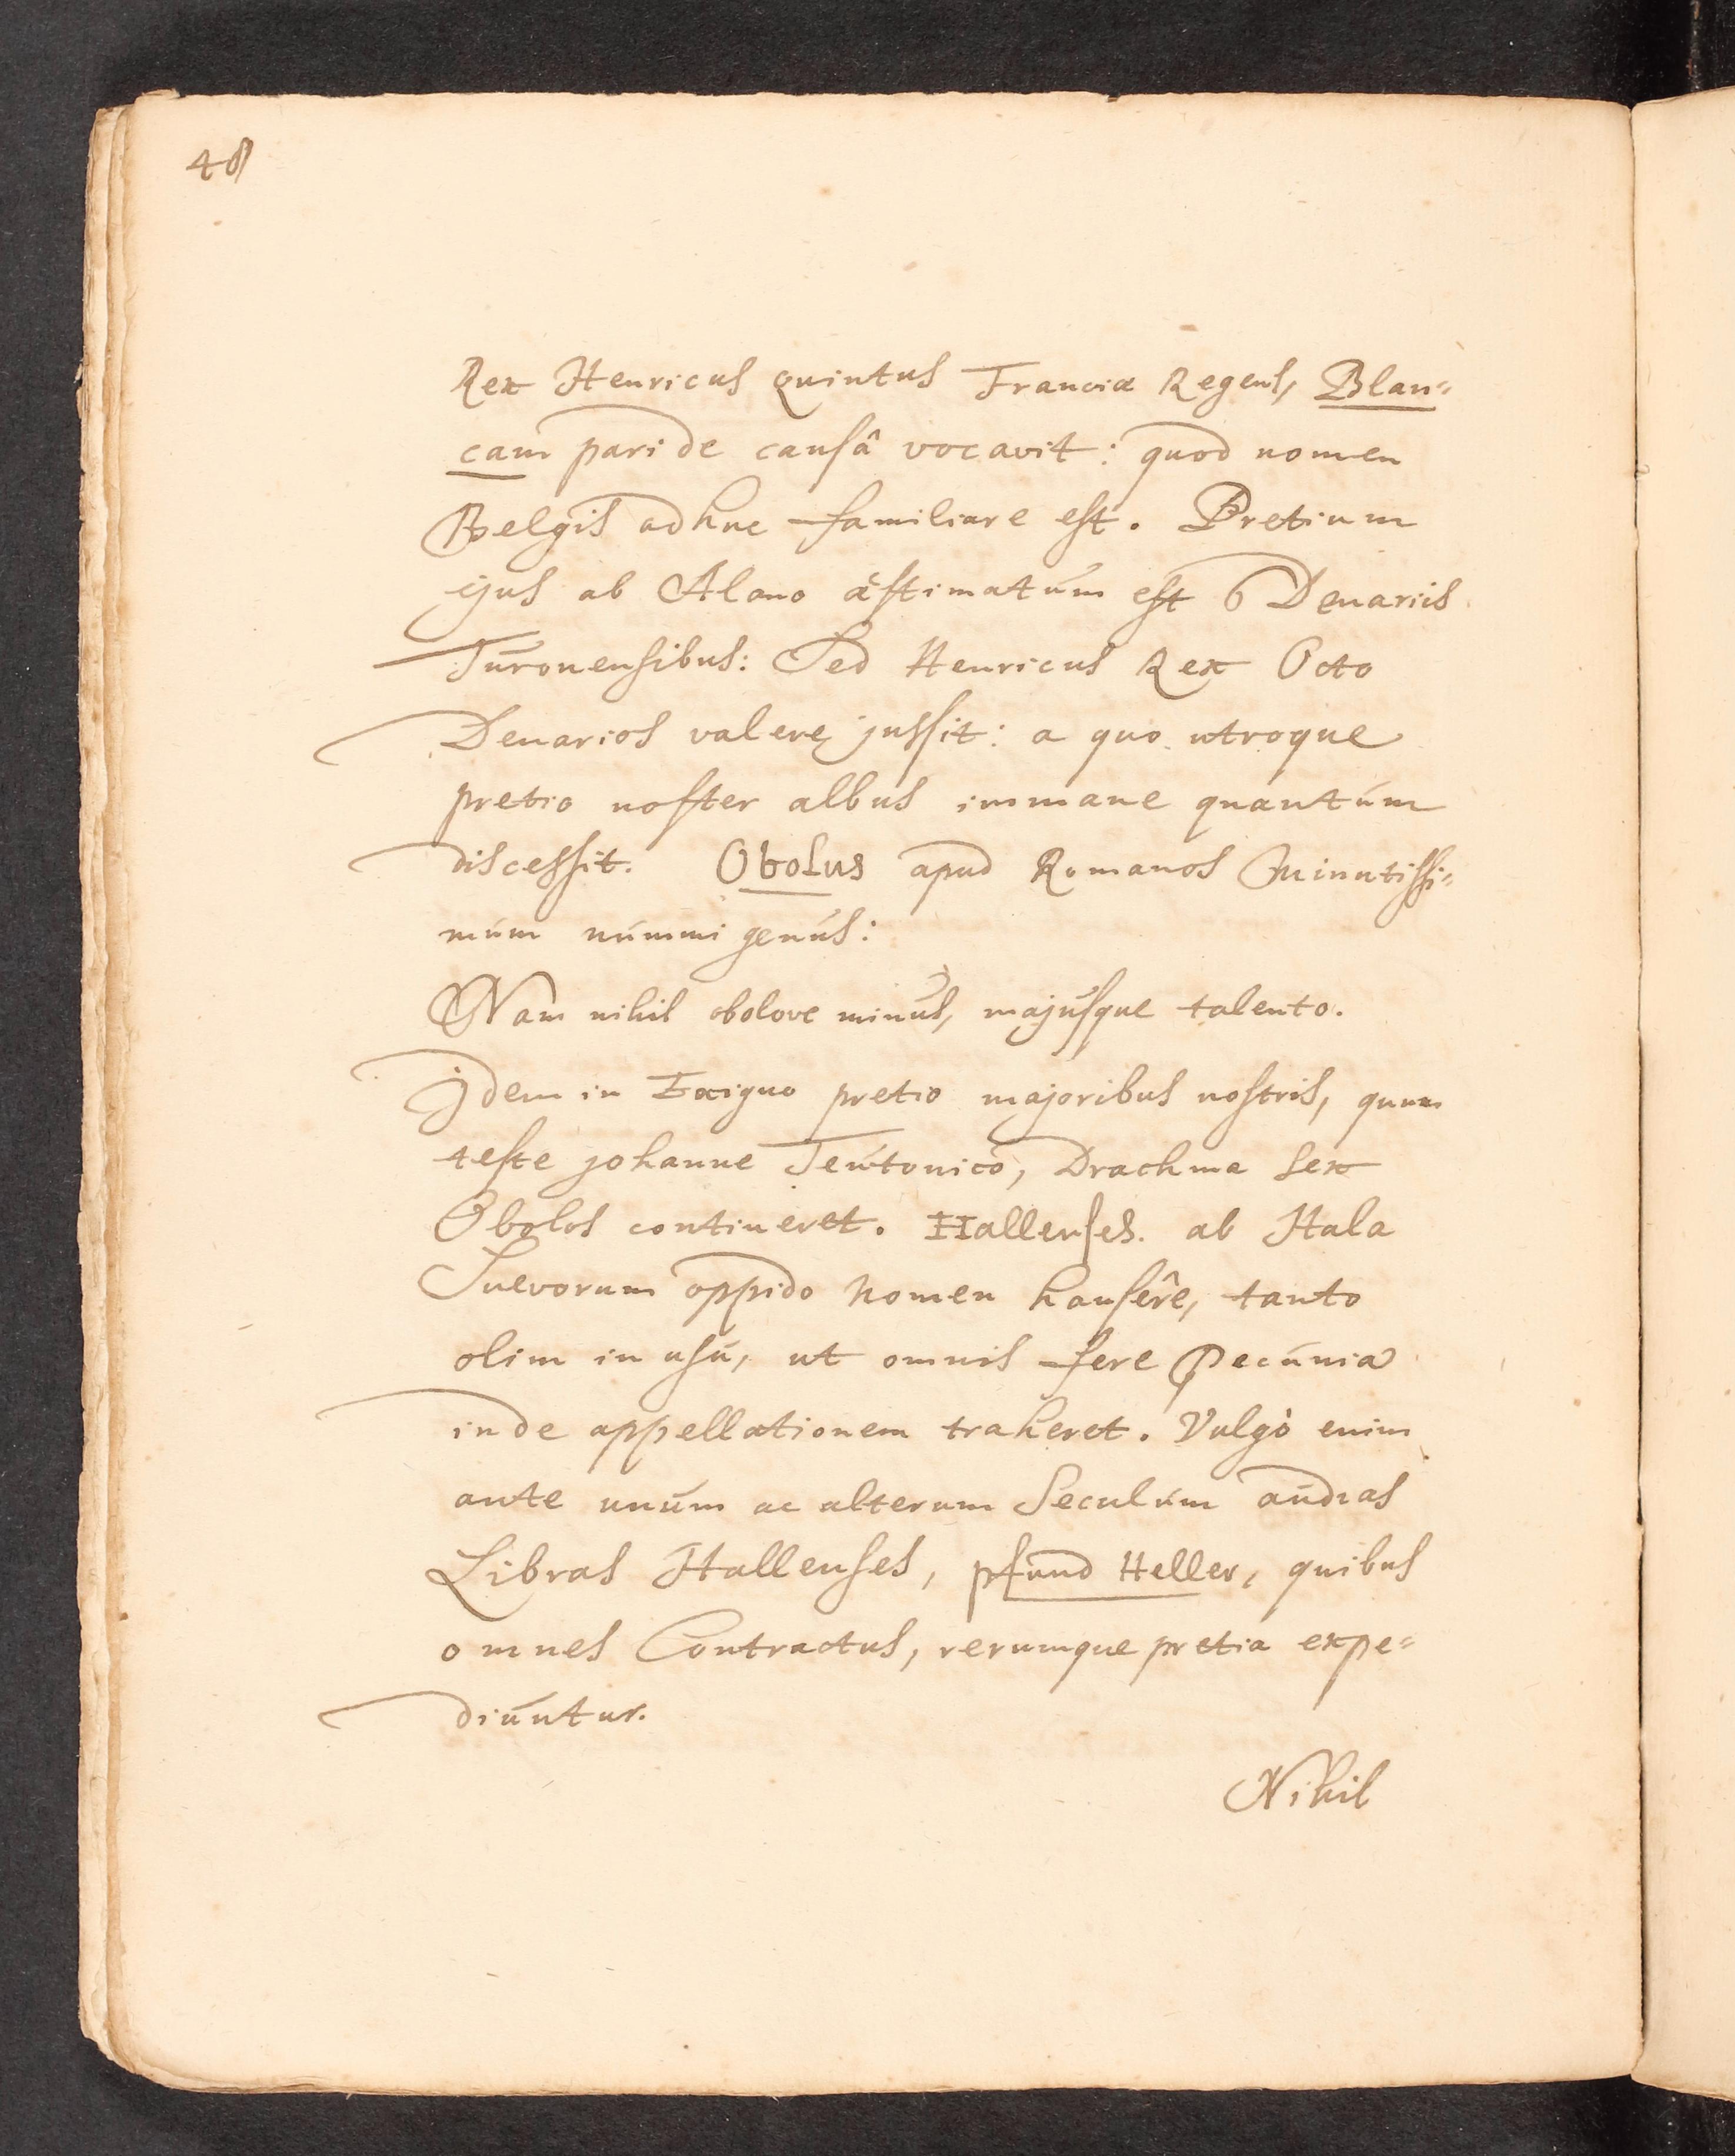 48
Rex Henricus quintus Franciæ Regens, Blan=
cam pari de causâ vocavit: quod nomen
Belgis adhuc familiare est. Pretium
ejus ab Alano æstimatum est 6 Denariis
Turonensibus: Sed Henricus Rex Octo
Denarios valere jussit: a quo utroque
pretio noster albus immane quantum
discessit. Obolus apud Romanos minutissi=
mum nummi genus:
Nam nihil obolove minus, majusque talento.
Jdem in Exiguo pretio majoribus nostris, quum
teste johanne Teutonico, Drachma sex
Obolos contineret. Hallenses. ab Hala
Suevorum oppido nomen hausêre, tanto
olim in usu, ut omnis fere Pecunia
inde appellationem traheret. Vulgò enim
ante unum ac alterum Seculum audias
Libras Hallenses, pfund Heller, quibus
omnes Contractus, rerumque pretia expe=
diuntur.
Nihil